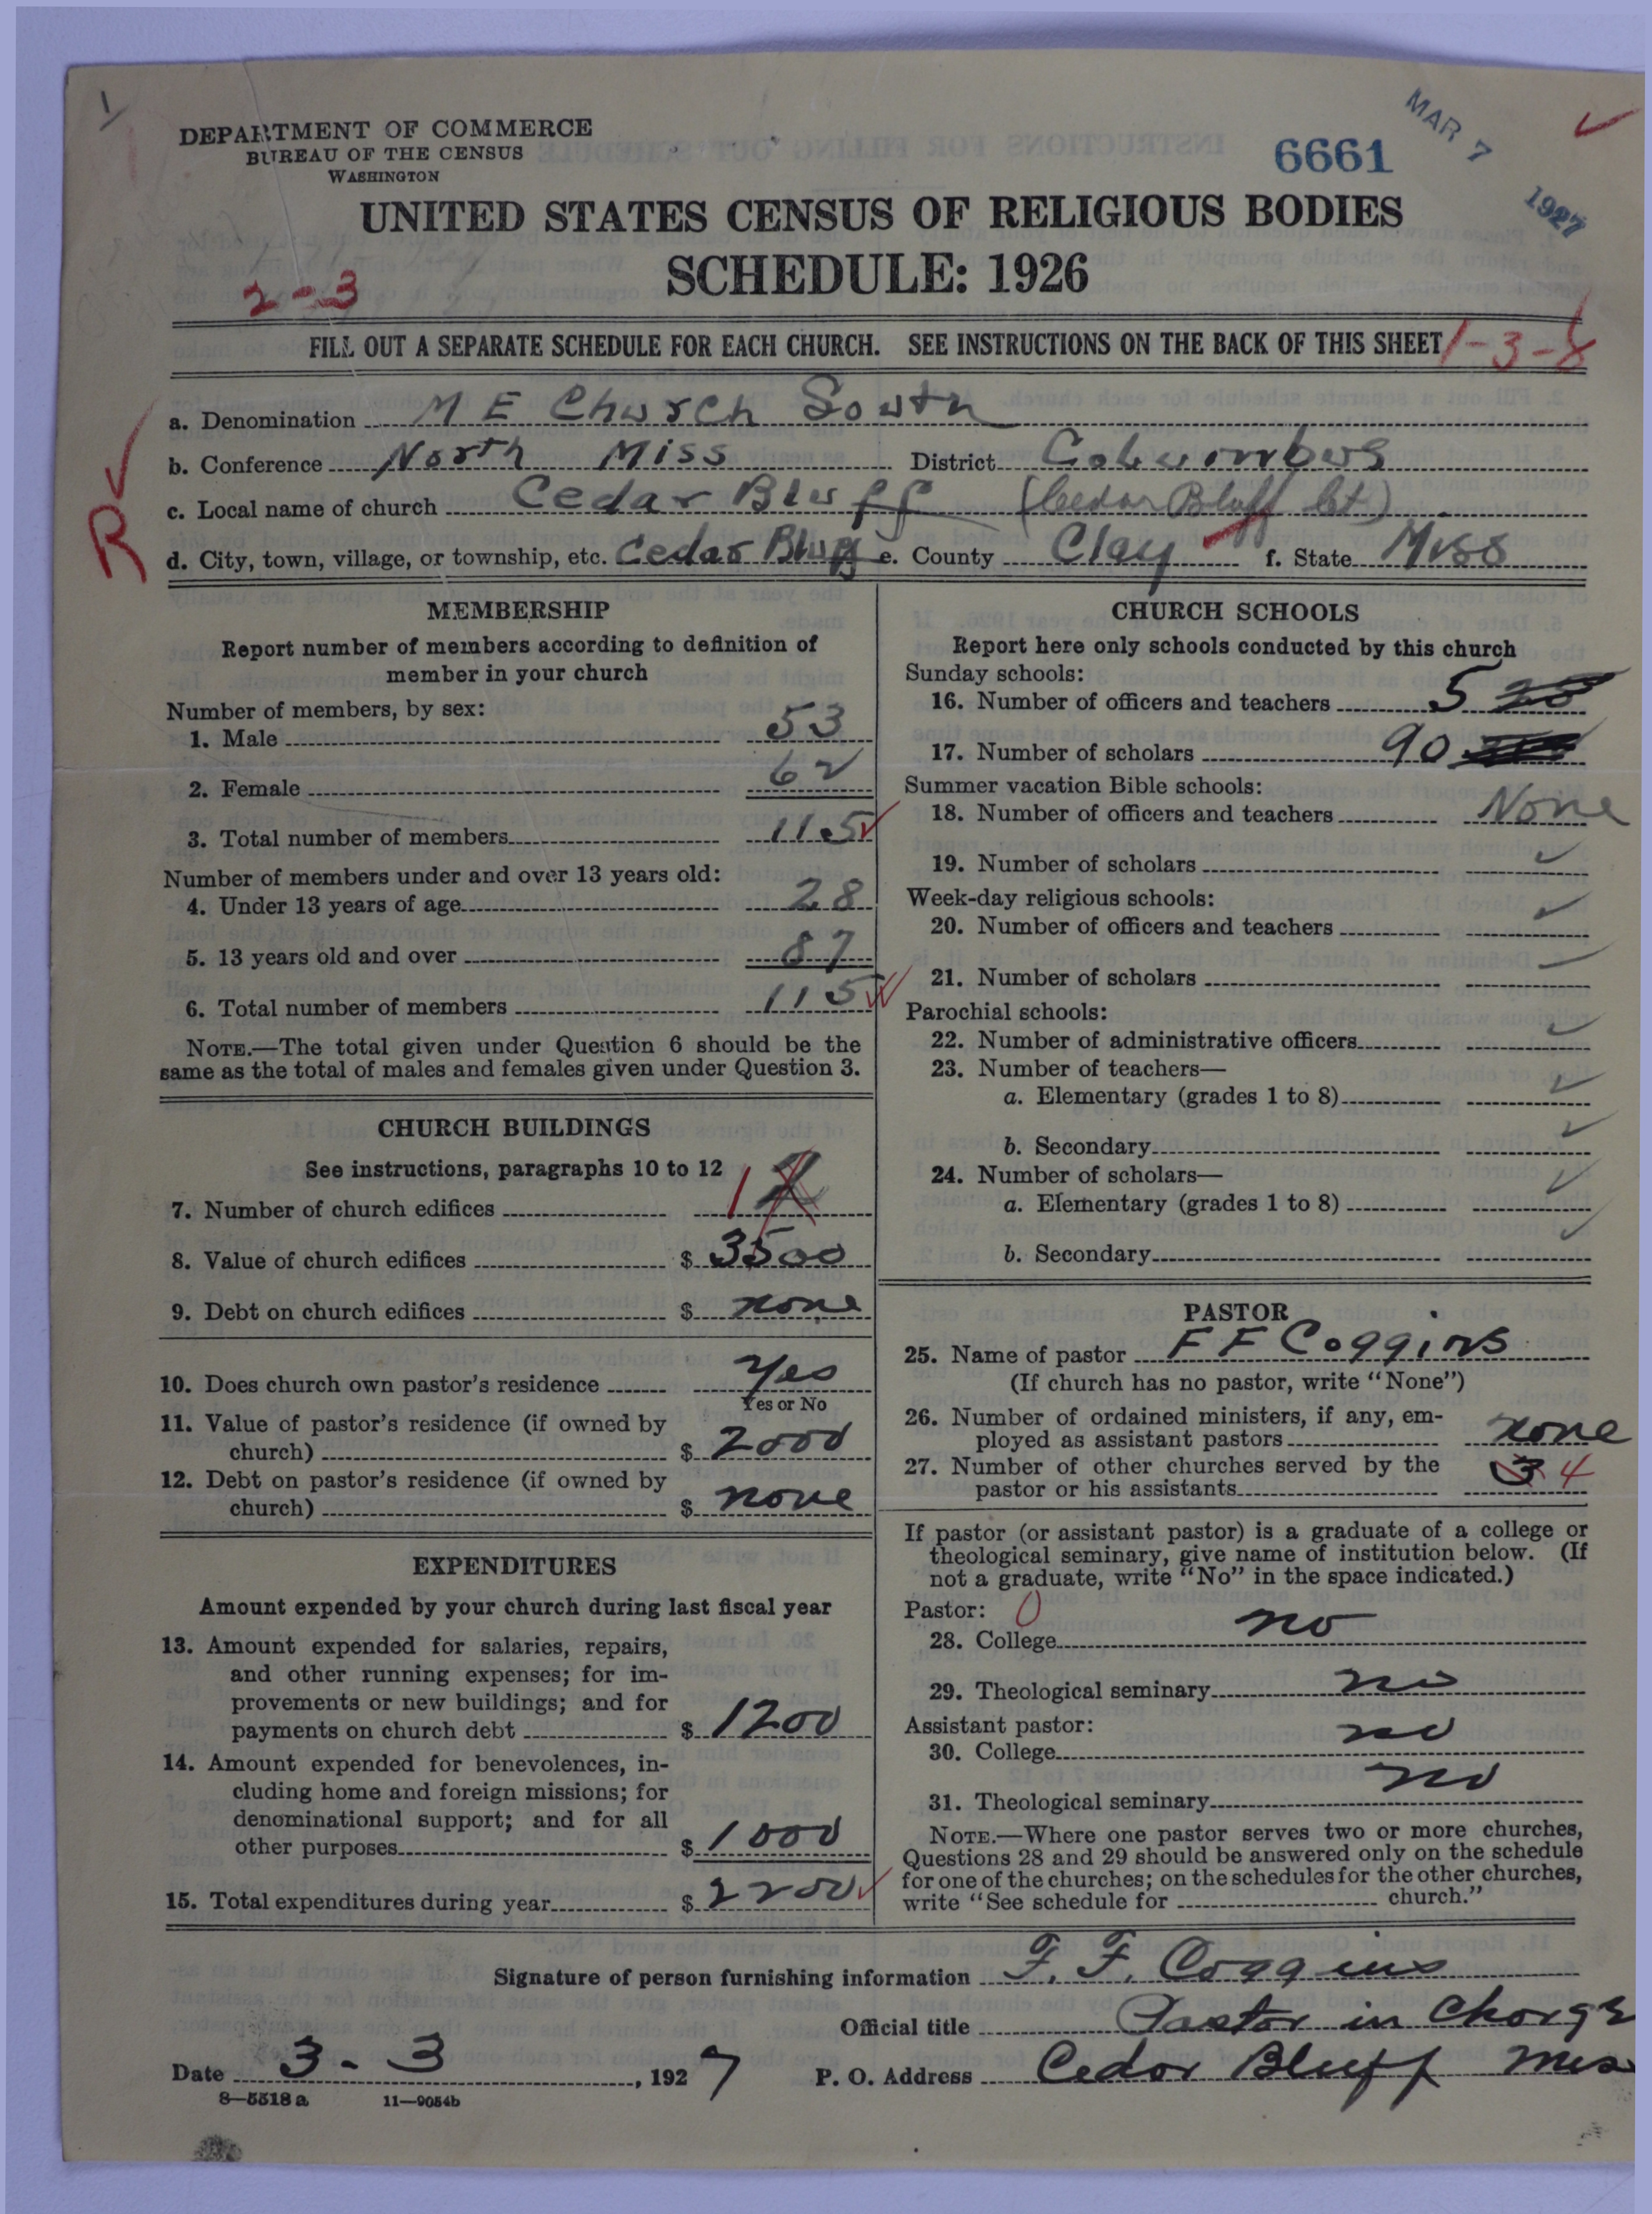 DEPARTMENT OF COMMERCE
BUREAU OF THE CENSUS
WASHINGTON
6661
MAR 7 1927
UNITED STATES CENSUS OF RELIGIOUS BODIES
SCHEDULE: 1926
2-3
FILL OUT A SEPARATE SCHEDULE FOR EACH CHURCH. SEE INSTRUCTIONS ON THE BACK OF THIS SHEET
1-3-8
a. Denomination M E Church South
b. Conference North Miss District Columbus
R
c. Local name of church Cedar Bluff (Cedar Bluff Ct)
d. City, town, village, or township, etc. Cedar Bluff e. County Clay f. State Miss
MEMBERSHIP
Report number of members according to definition of
member in your church
Number of members, by sex:
1. Male 53
2. Female 62
3. Total number of members 115
Number of members under and over 13 years old:
4. Under 13 years of age 28
5. 13 years old and over 87
6. Total number of members 115
NOTE.—The total given under Question 6 should be the
same as the total of males and females given under Question 3.
CHURCH BUILDINGS
See instructions, paragraphs 10 to 12
7. Number of church edifices 1
8. Value of church edifices $ 3500
9. Debt on church edifices $ none
10. Does church own pastor's residence Yes
Yes or No
11. Value of pastor's residence (if owned by
church) $ 2000
12. Debt on pastor's residence (if owned by
church) $ none
EXPENDITURES
Amount expended by your church during last fiscal year
13. Amount expended for salaries, repairs,
and other running expenses; for im-
provements or new buildings; and for
payments on church debt $ 1200
14. Amount expended for benevolences, in-
cluding home and foreign missions; for
denominational support; and for all
other purposes $ 1000
15. Total expenditures during year $ 2200
CHURCH SCHOOLS
Report here only schools conducted by this church
Sunday schools:
16. Number of officers and teachers 5
17. Number of scholars 90
Summer vacation Bible schools:
18. Number of officers and teachers None
19. Number of scholars
Week-day religious schools:
20. Number of officers and teachers
21. Number of scholars
Parochial schools:
22. Number of administrative officers
23. Number of teachers—
a. Elementary (grades 1 to 8)
b. Secondary
24. Number of scholars—
a. Elementary (grades 1 to 8)
b. Secondary
PASTOR
25. Name of pastor F F Coggins
(If church has no pastor, write "None")
26. Number of ordained ministers, if any, em-
ployed as assistant pastors none
27. Number of other churches served by the
pastor or his assistants 3 4
If pastor (or assistant pastor) is a graduate of a college or
theological seminary, give name of institution below. (If
not a graduate, write "No" in the space indicated.)
Pastor: 0
28. College no
29. Theological seminary no
Assistant pastor:
30. College no
31. Theological seminary no
NOTE.—Where one pastor serves two or more churches,
Questions 28 and 29 should be answered only on the schedule
for one of the churches; on the schedules for the other churches,
write "See schedule for church."
Signature of person furnishing information F. F. Coggins
Official title Pastor in Charge
Date 3-3, 1927 P. O. Address Cedar Bluff Miss
8—5518 a 11—9054b